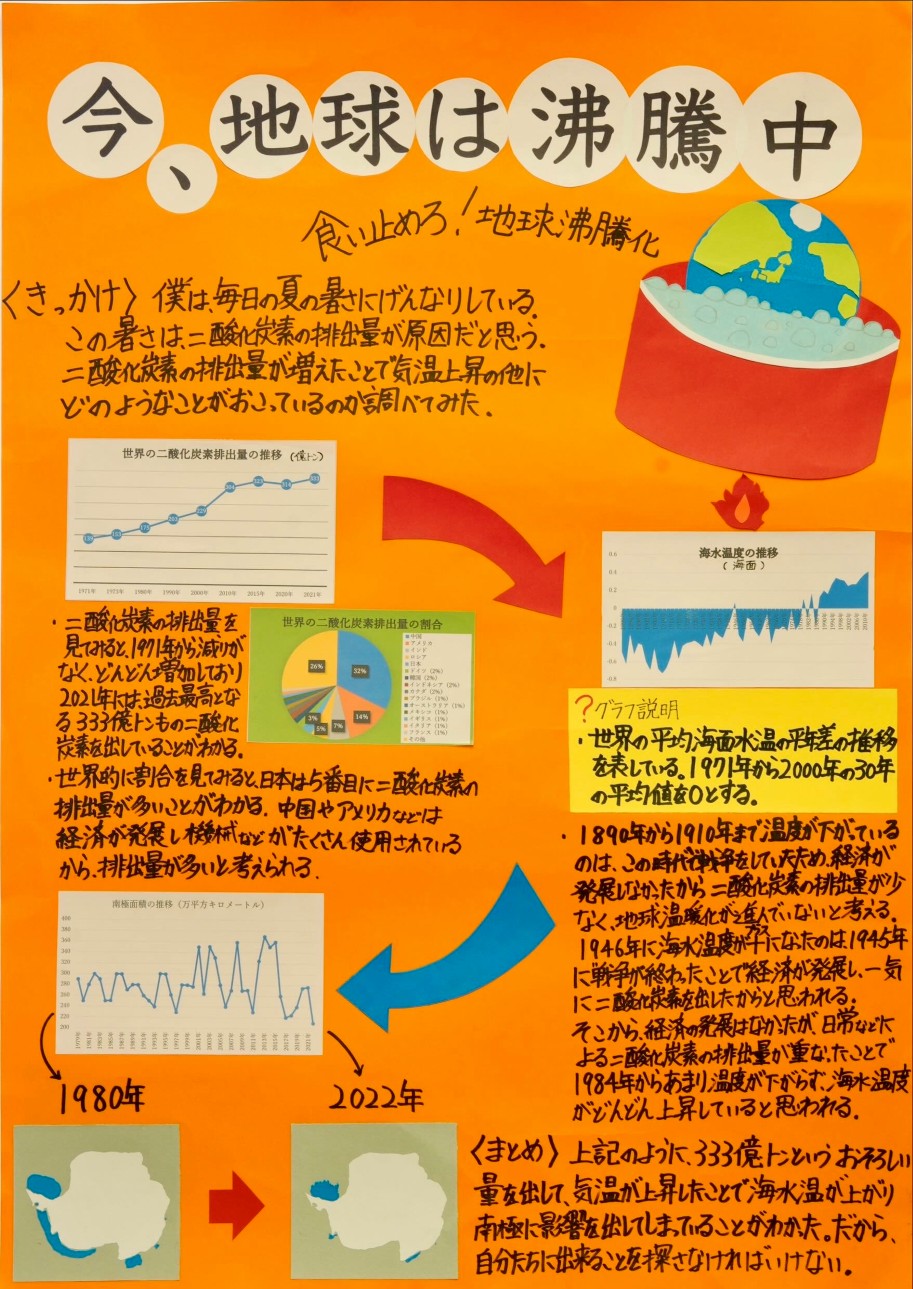 今、地球は沸騰中
食い止めろ!地球沸騰化
〈きっかけ〉僕は、毎日の夏の暑さにげんなりしている。
この暑さは、二酸化炭素の排出量が原因だと思う。
二酸化炭素の排出量が増えたことで気温上昇の他に
どのようなことがおこっているのか調べてみた。
世界の二酸化炭素排出量の推移(億トン)
139 153 175 203 229 304 322 314 333
1971年 1975年 1980年 1990年 2000年 2010年 2015年 2020年 2021年
・二酸化炭素の排出量を
見てみると、1971年から減りが
なく、どんどん増加しており
2021年には、過去最高とな
る333億トンもの二酸化
炭素を出していることがわかる。
世界の二酸化炭素排出量の割合
26%
32%
14%
7%
5%
3%
中国
アメリカ
インド
ロシア
日本
ドイツ(2%)
韓国(2%)
インドネシア(2%)
カナダ(2%)
ブラジル(1%)
オーストラリア(1%)
メキシコ(1%)
イギリス(1%)
イタリア(1%)
フランス(1%)
その他
・世界的に割合を見てみると、日本は5番目に二酸化炭素の
排出量が多いことがわかる。中国やアメリカなどは
経済が発展し機械などがたくさん使用されている
から、排出量が多いと考えられる.
海水温度の推移
(海面)
0.6
0.4
0.2
0
-0.2
-0.4
-0.6
-0.8
?グラフ説明
・世界の平均海面水温の平年差の推移
を表している。1971年から2000年の30年
の平均値を0とする。
・1890年から1910年まで温度が下がっている
のは、この時代で戦争をしていたため、経済が
発展しなかったから二酸化炭素の排出量が少
なく、地球温暖化が進んでいないと考える。
1946年に海水温度が+になったのは1945年
プラス
に戦争が終わったことで経済が発展し、一気
に二酸化炭素を出したからと思われる。
そこから、経済の発展はなかったが、日常などに
よる二酸化炭素の排出量が重なったことで
1984年からあまり、温度が下がらず、海水温度
がどんどん上昇していると思われる。
南極面積の推移(万平方キロメートル)
400
380
360
340
320
300
280
260
240
220
200
1980年
2022年
〈まとめ〉上記のように、333億トンというおそろしい
量を出して、気温が上昇したことで海水温が上がり
南極に影響を出してしまっていることがわかった。だから、
自分たちに出来ることを探さなければいけない。